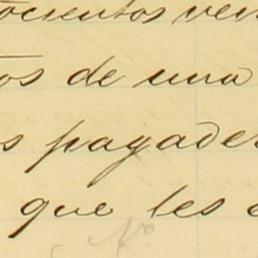 ocientos vein
os de una
s pagader
que les
No